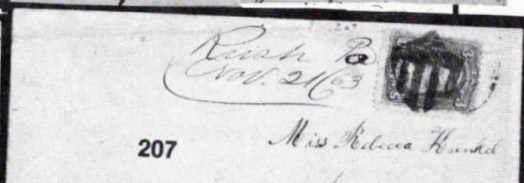 Rush Pa
Nov. 21/63
207
Miss Rebecca Kunkel